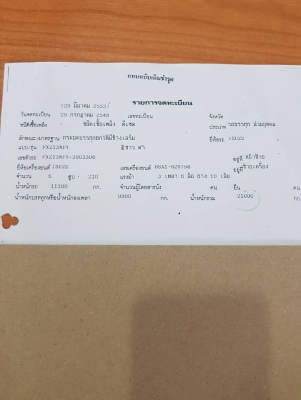 แทนฉบับเดิมชำรุด
(29 มีนาคม 2553)
รายการจดทะเบียน
วันจดทะเบียน 25 กรกฎาคม 2548 เลขทะเบียน จังหวัด
ชนิดเชื้อเพลิง ดีเซล ประเภท รถบรรทุก ส่วนบุคคล
ลักษณะ/มาตรฐาน กระบะบรรทุก ยี่ห้อรถ ISUZU
แบบ/รุ่น สีขาว ฟ้า
เลขตัวรถ อยู่ที่
ยี่ห้อเครื่องยนต์ ISUZU เลขเครื่องยนต์ อยู่ที่
จำนวน 6 สูบ 210 แรงม้า 3 เพลา 6 ล้อ ยาง 10 เส้น
น้ำหนักรถ 11100 กก. จำนวนผู้โดยสารนั่ง คน ยืน คน
น้ำหนักบรรทุกหรือน้ำหนักลงเพลา กก. น้ำหนักรวม 21000 กก.